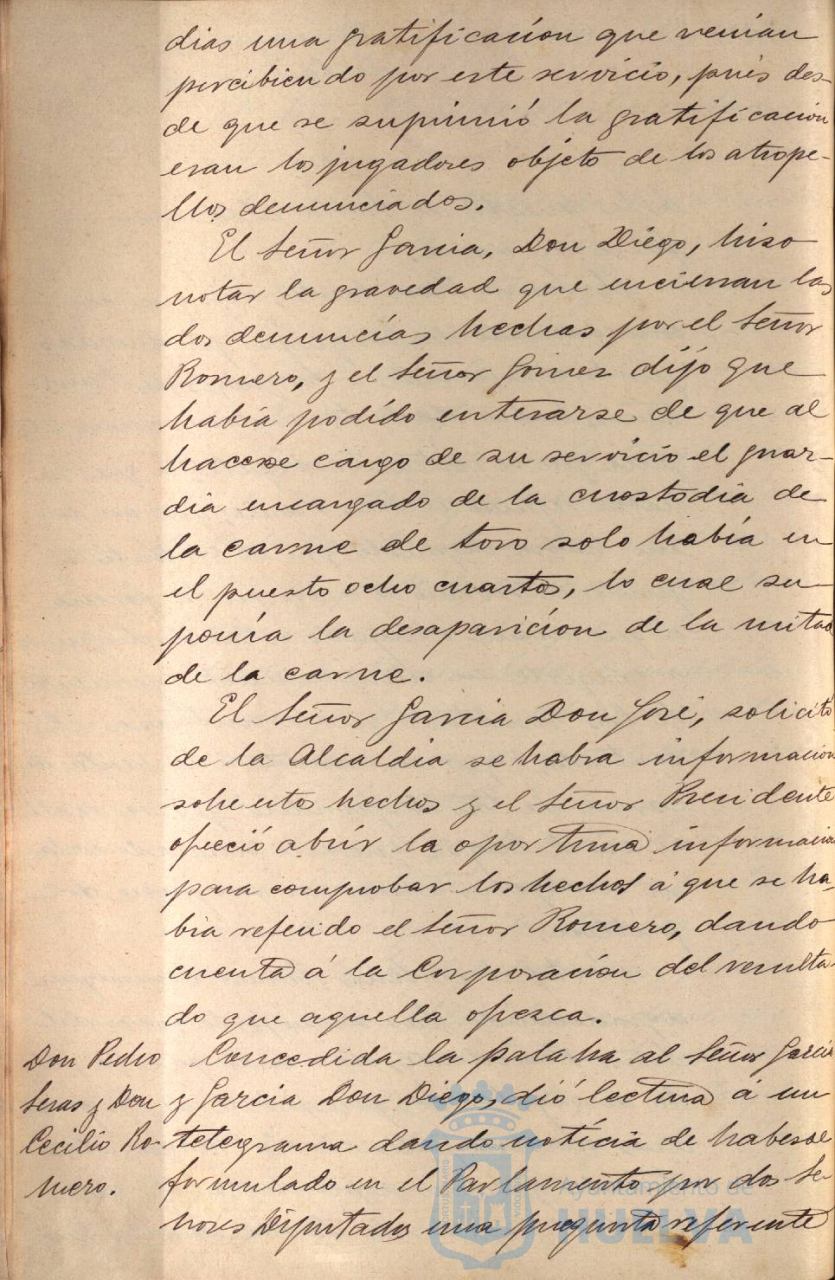 dias una gratificación que venian
percibiendo por este servicio, pues des-
de que se suprimió la gratificación
eran los jugadores objeto de los atrope-
llos denunciados.
El Señor Garcia, Don Diego, hizo
notar la gravedad que encierran las
dos denuncias hechas por el Señor
Romero, y el Señor Gomez dijo que
habia podido enterarse de que al
hacerse cargo de su servicio el guar-
dia encargado de la custodia de
la carne de toro solo habia en
el puesto ocho cuartos, lo cual su-
ponia la desaparicion de la mitad
de la carne.
El Señor Garcia Don José, solicitó
de la Alcaldia se habra informacion
sobre estos hechos y el Señor Presidente
ofreció abrir la oportuna informacion
para comprobar los hechos á que se ha-
bia referido el Señor Romero, dando
cuenta á la Corporacion del resulta-
do que aquella ofrezca.
Don Pedro
Seras y Don
Cecilio Ro-
mero.
Concedida la palabra al Señor Garcia
y Garcia Don Diego, dió lectura á un
telegrama dando noticia de haberse
formulado en el Parlamento por dos Se-
ñores Diputados una pregunta referente
Ayuntamiento de
HUELVA